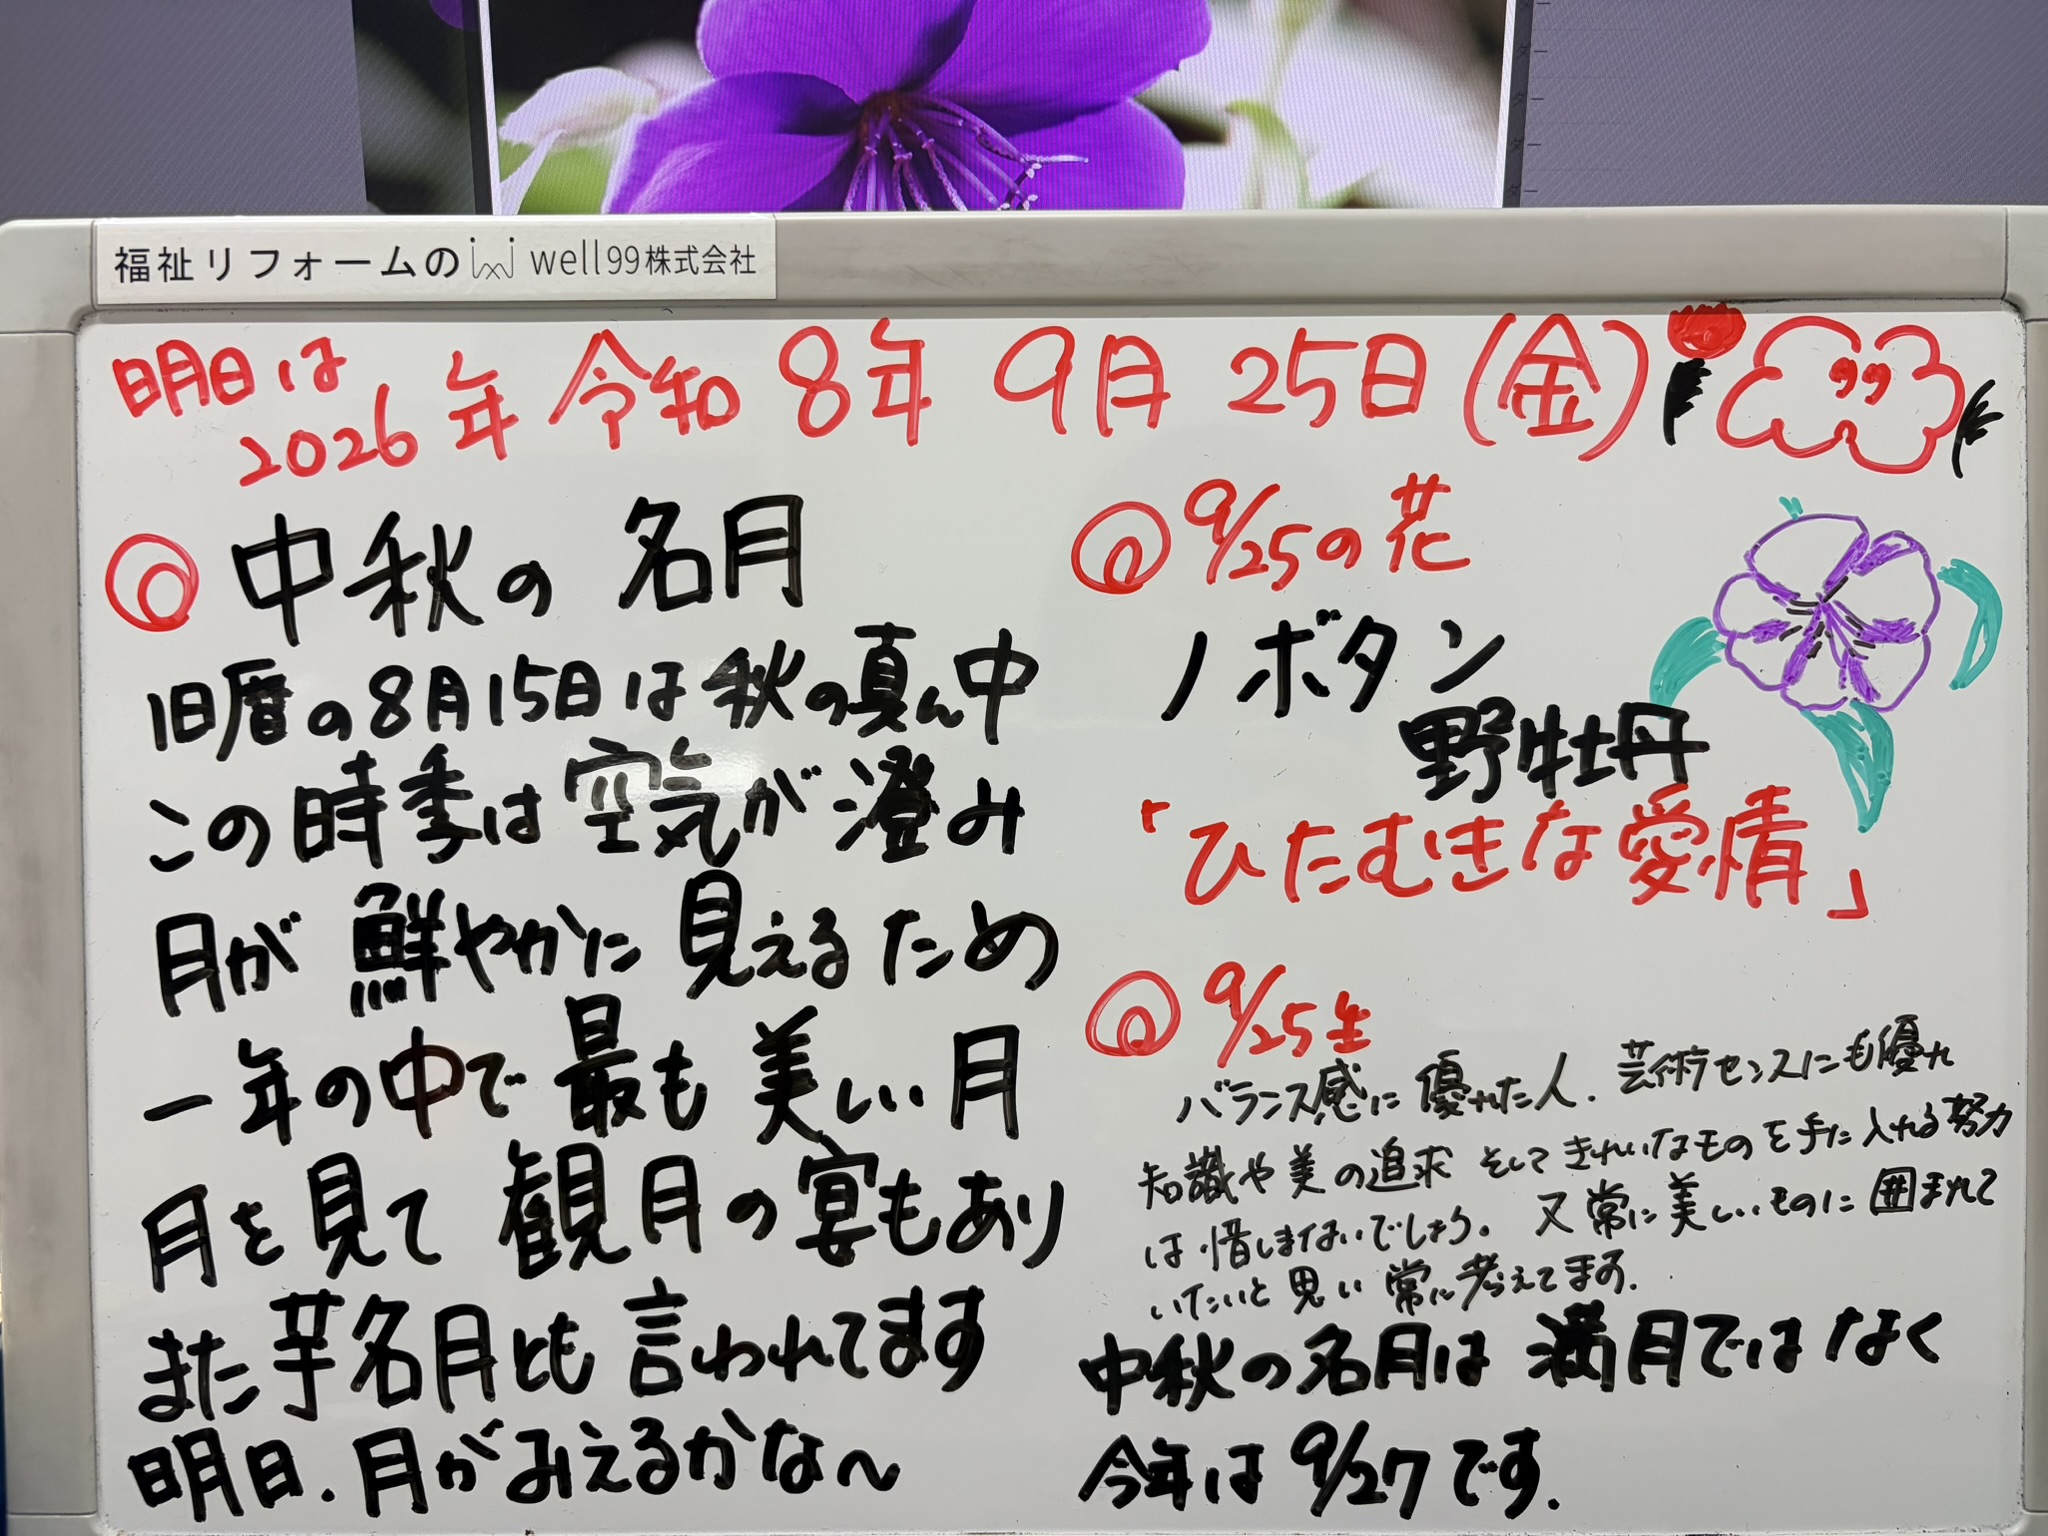 福祉リフォームの well99株式会社
明日は
2026年 令和 8年 9月 25日(金)
中秋の名月
旧暦の8月15日は秋の真ん中
この時季は空気が澄み
月が鮮やかに見えるため
一年の中で最も美しい月
月を見て 観月の宴もあり
また芋名月とも言われてます
明日.月がみえるかな〜
9/25の花
ノボタン
野牡丹
「ひたむきな愛情」
9/25生
バランス感に優れた人.芸術センスにも優れ
知識や美の追求 そしてきれいなものを手に入れる努力
は惜しまないでしょう。又常に美しいものに囲まれて
いたいと思い常に考えてます.
中秋の名月は満月ではなく
今年は9/27です.